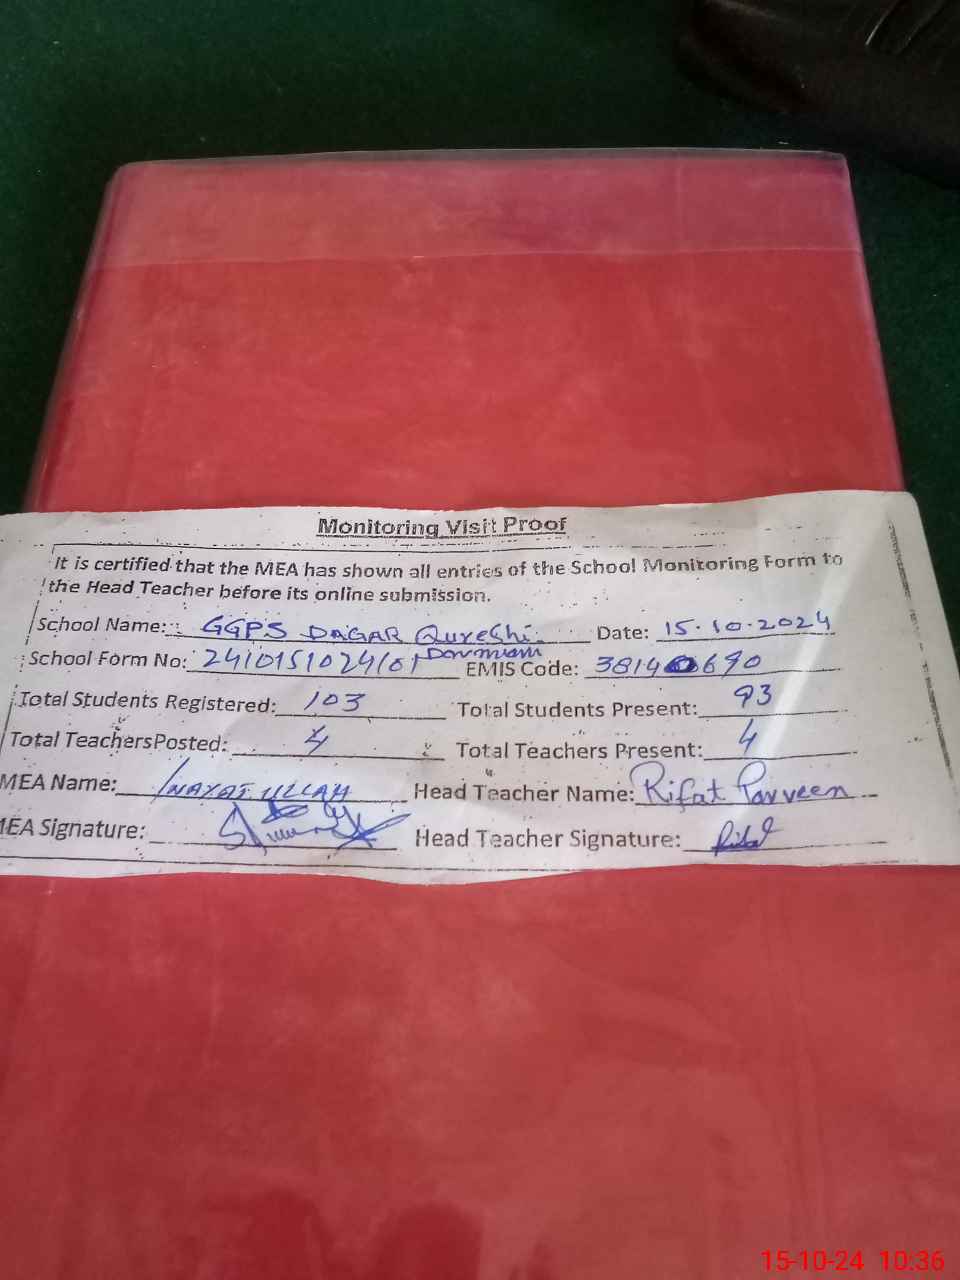 Monitoring Visit Proof
It is certified that the MEA has shown all entries of the School Monitoring Form to
the Head Teacher before its online submission.
School Name: GGPS DAGAR Qureshi Date: 15.10.2024
School Form No: 2410151024101 EMIS Code: 38140690
Total Students Registered: 103 Total Students Present: 93
Total TeachersPosted: 4 Total Teachers Present: 4
MEA Name: INAYAT ULLAH Head Teacher Name: Rifat Parveen
MEA Signature: Head Teacher Signature: Rifat
15-10-24 10:36